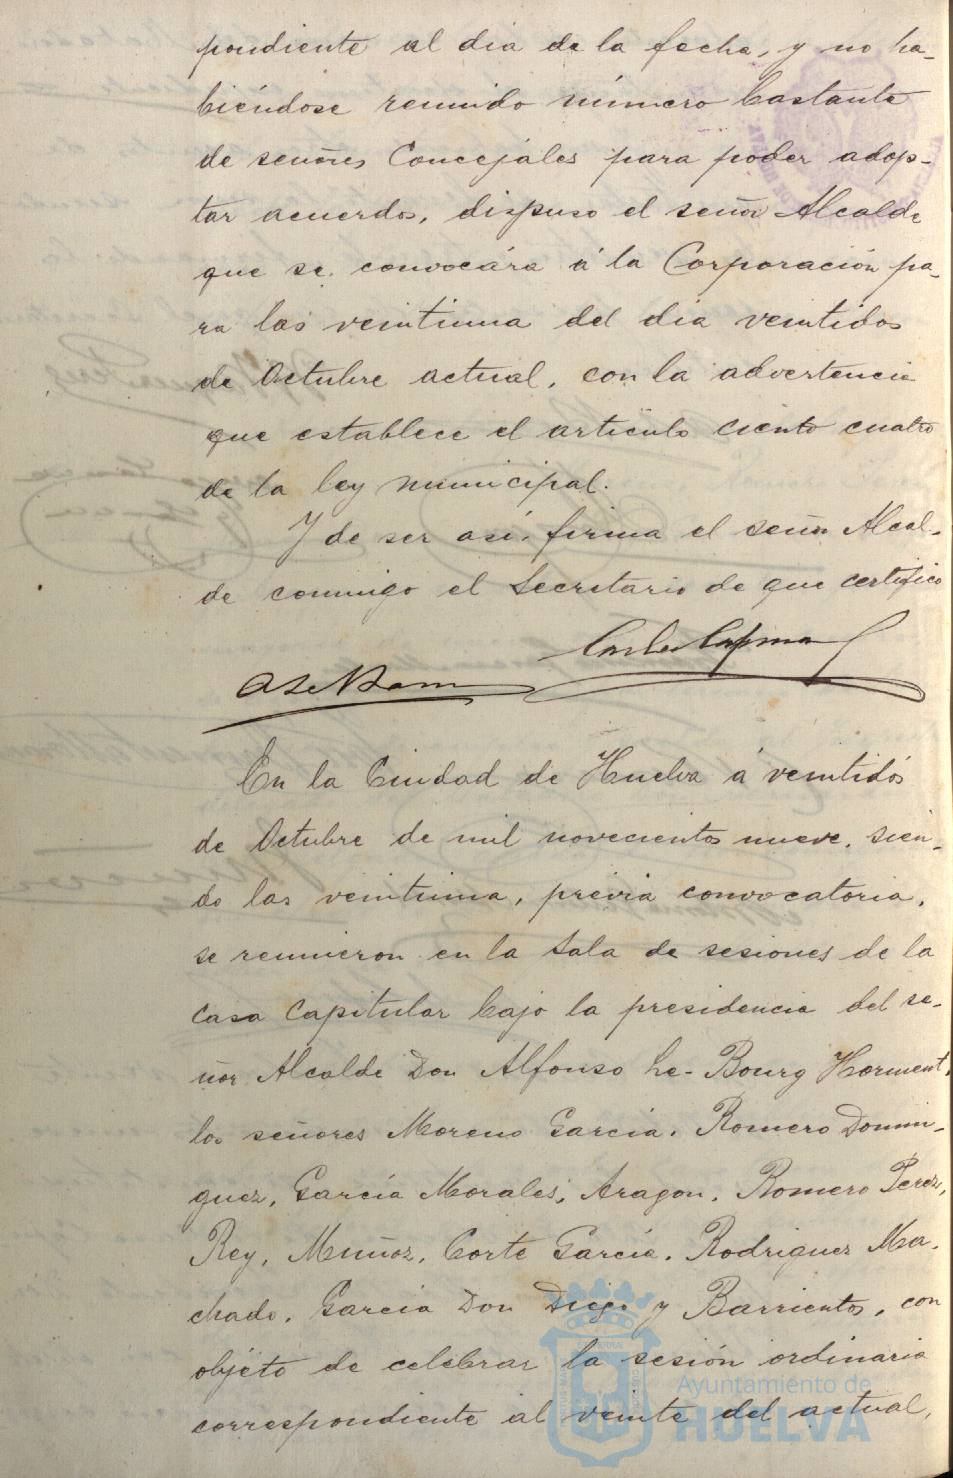 pondiente al dia de la fecha, y no ha-
biéndose reunido número bastante
de señores Concejales para poder adop-
tar acuerdos, dispuso el señor Alcalde
que se convocára á la Corporación pa-
ra las veintiuna del dia veintidos
de Octubre actual, con la advertencia
que establece el articulo ciento cuatro
de la ley municipal.
Y de ser asi, firma el señor Alcal-
de conmigo el Secretario de que certifico
En la Ciudad de Huelva á veintidós
de Octubre de mil novecientos nueve, sien-
do las veintiuna, prévia convocatoria,
se reunieron en la Sala de sesiones de la
Casa Capitular bajo la presidencia del se-
ñor Alcalde Don Alfonso Le-Bourg Horment,
los señores Moreno Garcia, Romero Domin-
guez, García Morales, Aragon, Romero Perez,
Rey, Muñoz, Corte García, Rodriguez Ma-
chado, Garcia Don Diego y Barrientos, con
objeto de celebrar la sesión ordinaria
correspondiente al veinte del actual,
Ayuntamiento de
HUELVA